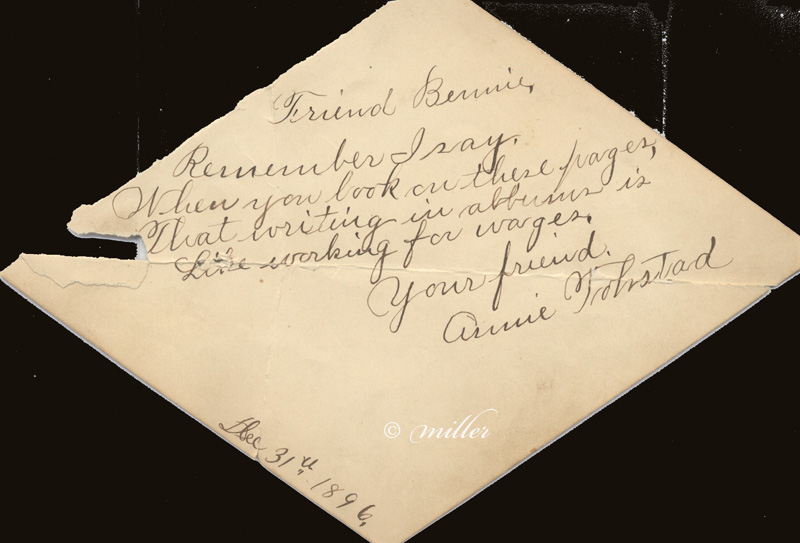 Friend Bennie,
Remember I say.
When you look on these pages,
That writing in albums is
Like working for wages.
Your friend.
Annie Tohstad
Dec 31st, 1896,
© miller